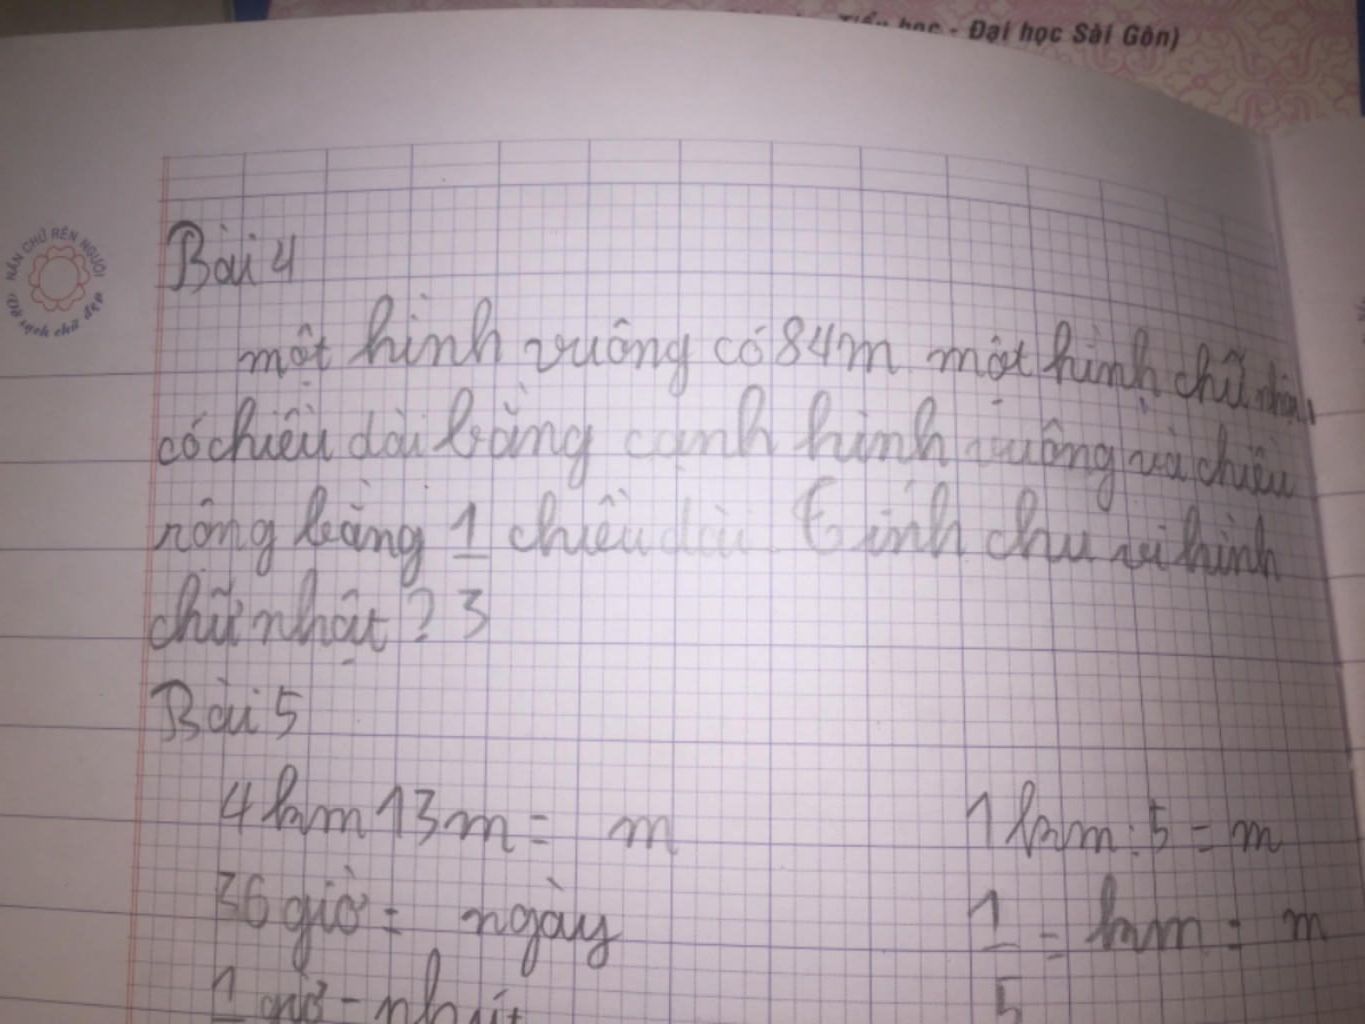 học - Đại học Sài Gòn)
NẮN CHỮ RÈN NGƯỜI
Giữ sạch chữ đẹp
Bài 4
một hình vuông có 84m một hình chữ nhật
có chiều dài bằng cạnh hình vuông và chiều
rông bằng 1 chiều dài. Tính chu vi hình
chữ nhật? 3
Bài 5
4km 13m = m 1km : 5 = m
36 giờ = ngày 1 = km = m
1 giờ = phút 5